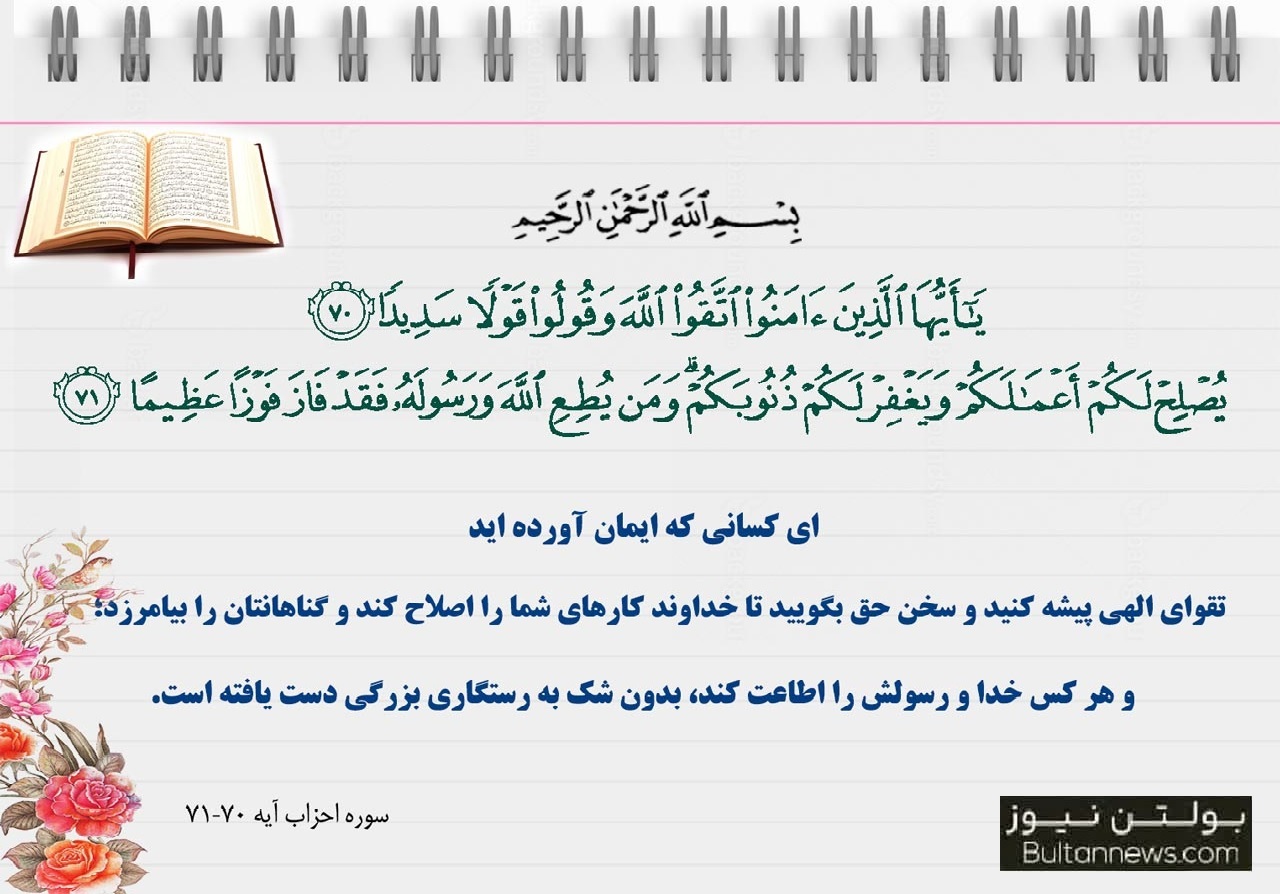 بِسْمِ ٱللَّهِ ٱلرَّحْمَٰنِ ٱلرَّحِيمِ
يَـٰٓأَيُّهَا ٱلَّذِينَ ءَامَنُوا۟ ٱتَّقُوا۟ ٱللَّهَ وَقُولُوا۟ قَوْلًا سَدِيدًا ﴿٧٠﴾
يُصْلِحْ لَكُمْ أَعْمَـٰلَكُمْ وَيَغْفِرْ لَكُمْ ذُنُوبَكُمْ ۗ وَمَن يُطِعِ ٱللَّهَ وَرَسُولَهُۥ فَقَدْ فَازَ فَوْزًا عَظِيمًا ﴿٧١﴾
ای کسانی که ایمان آورده اید
تقوای الهی پیشه کنید و سخن حق بگویید تا خداوند کارهای شما را اصلاح کند و گناهانتان را بیامرزد؛
و هر کس خدا و رسولش را اطاعت کند، بدون شک به رستگاری بزرگی دست یافته است.
سوره احزاب آیه ۷۰-۷۱
بولتن نیوز
Bultannews.com